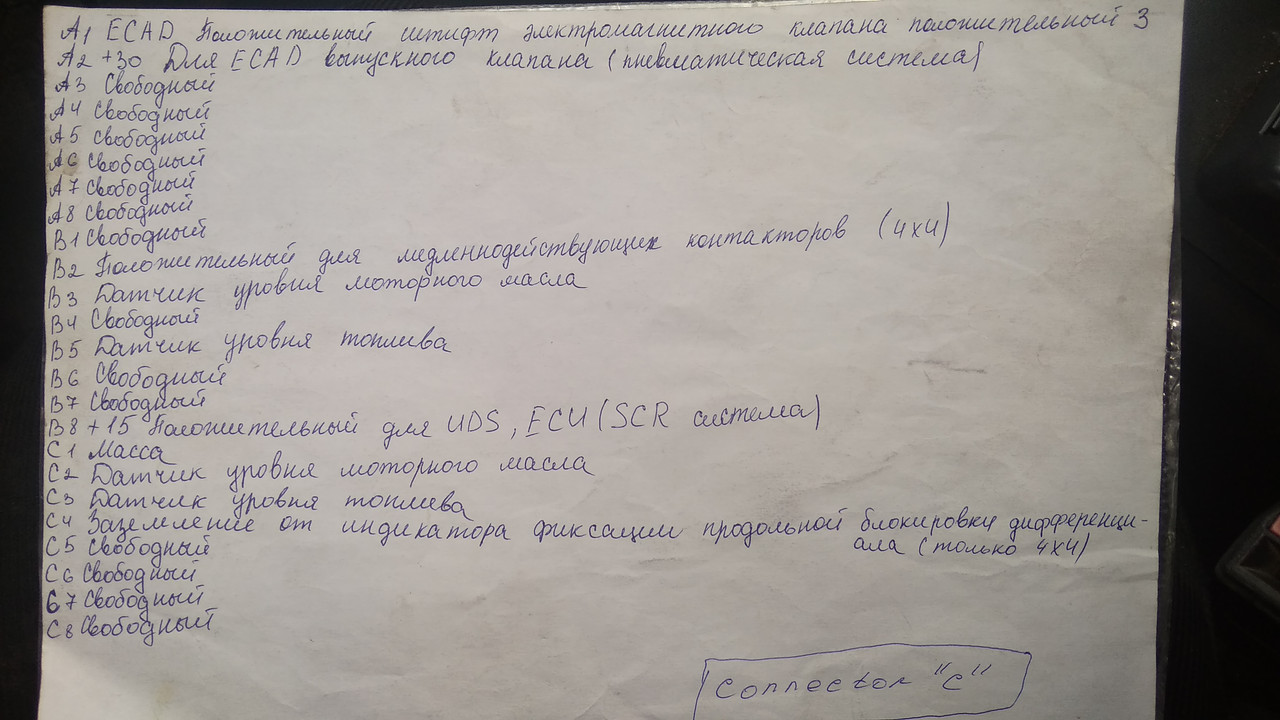 A1 ECAD Положительный штифт электромагнитного клапана положительный 3
A2 +30 Для ECAD выпускного клапана (пневматическая система)
A3 Свободный
A4 Свободный
A5 Свободный
A6 Свободный
A7 Свободный
A8 Свободный
B1 Свободный
B2 Положительный для медленнодействующих контакторов (4x4)
B3 Датчик уровня моторного масла
B4 Свободный
B5 Датчик уровня топлива
B6 Свободный
B7 Свободный
B8 +15 Положительный для UDS, ECU (SCR система)
C1 Масса
C2 Датчик уровня моторного масла
C3 Датчик уровня топлива
C4 Заземление от индикатора фиксации продольной блокировки дифференци-
ала (только 4x4)
C5 Свободный
C6 Свободный
C7 Свободный
C8 Свободный
Connector "C"